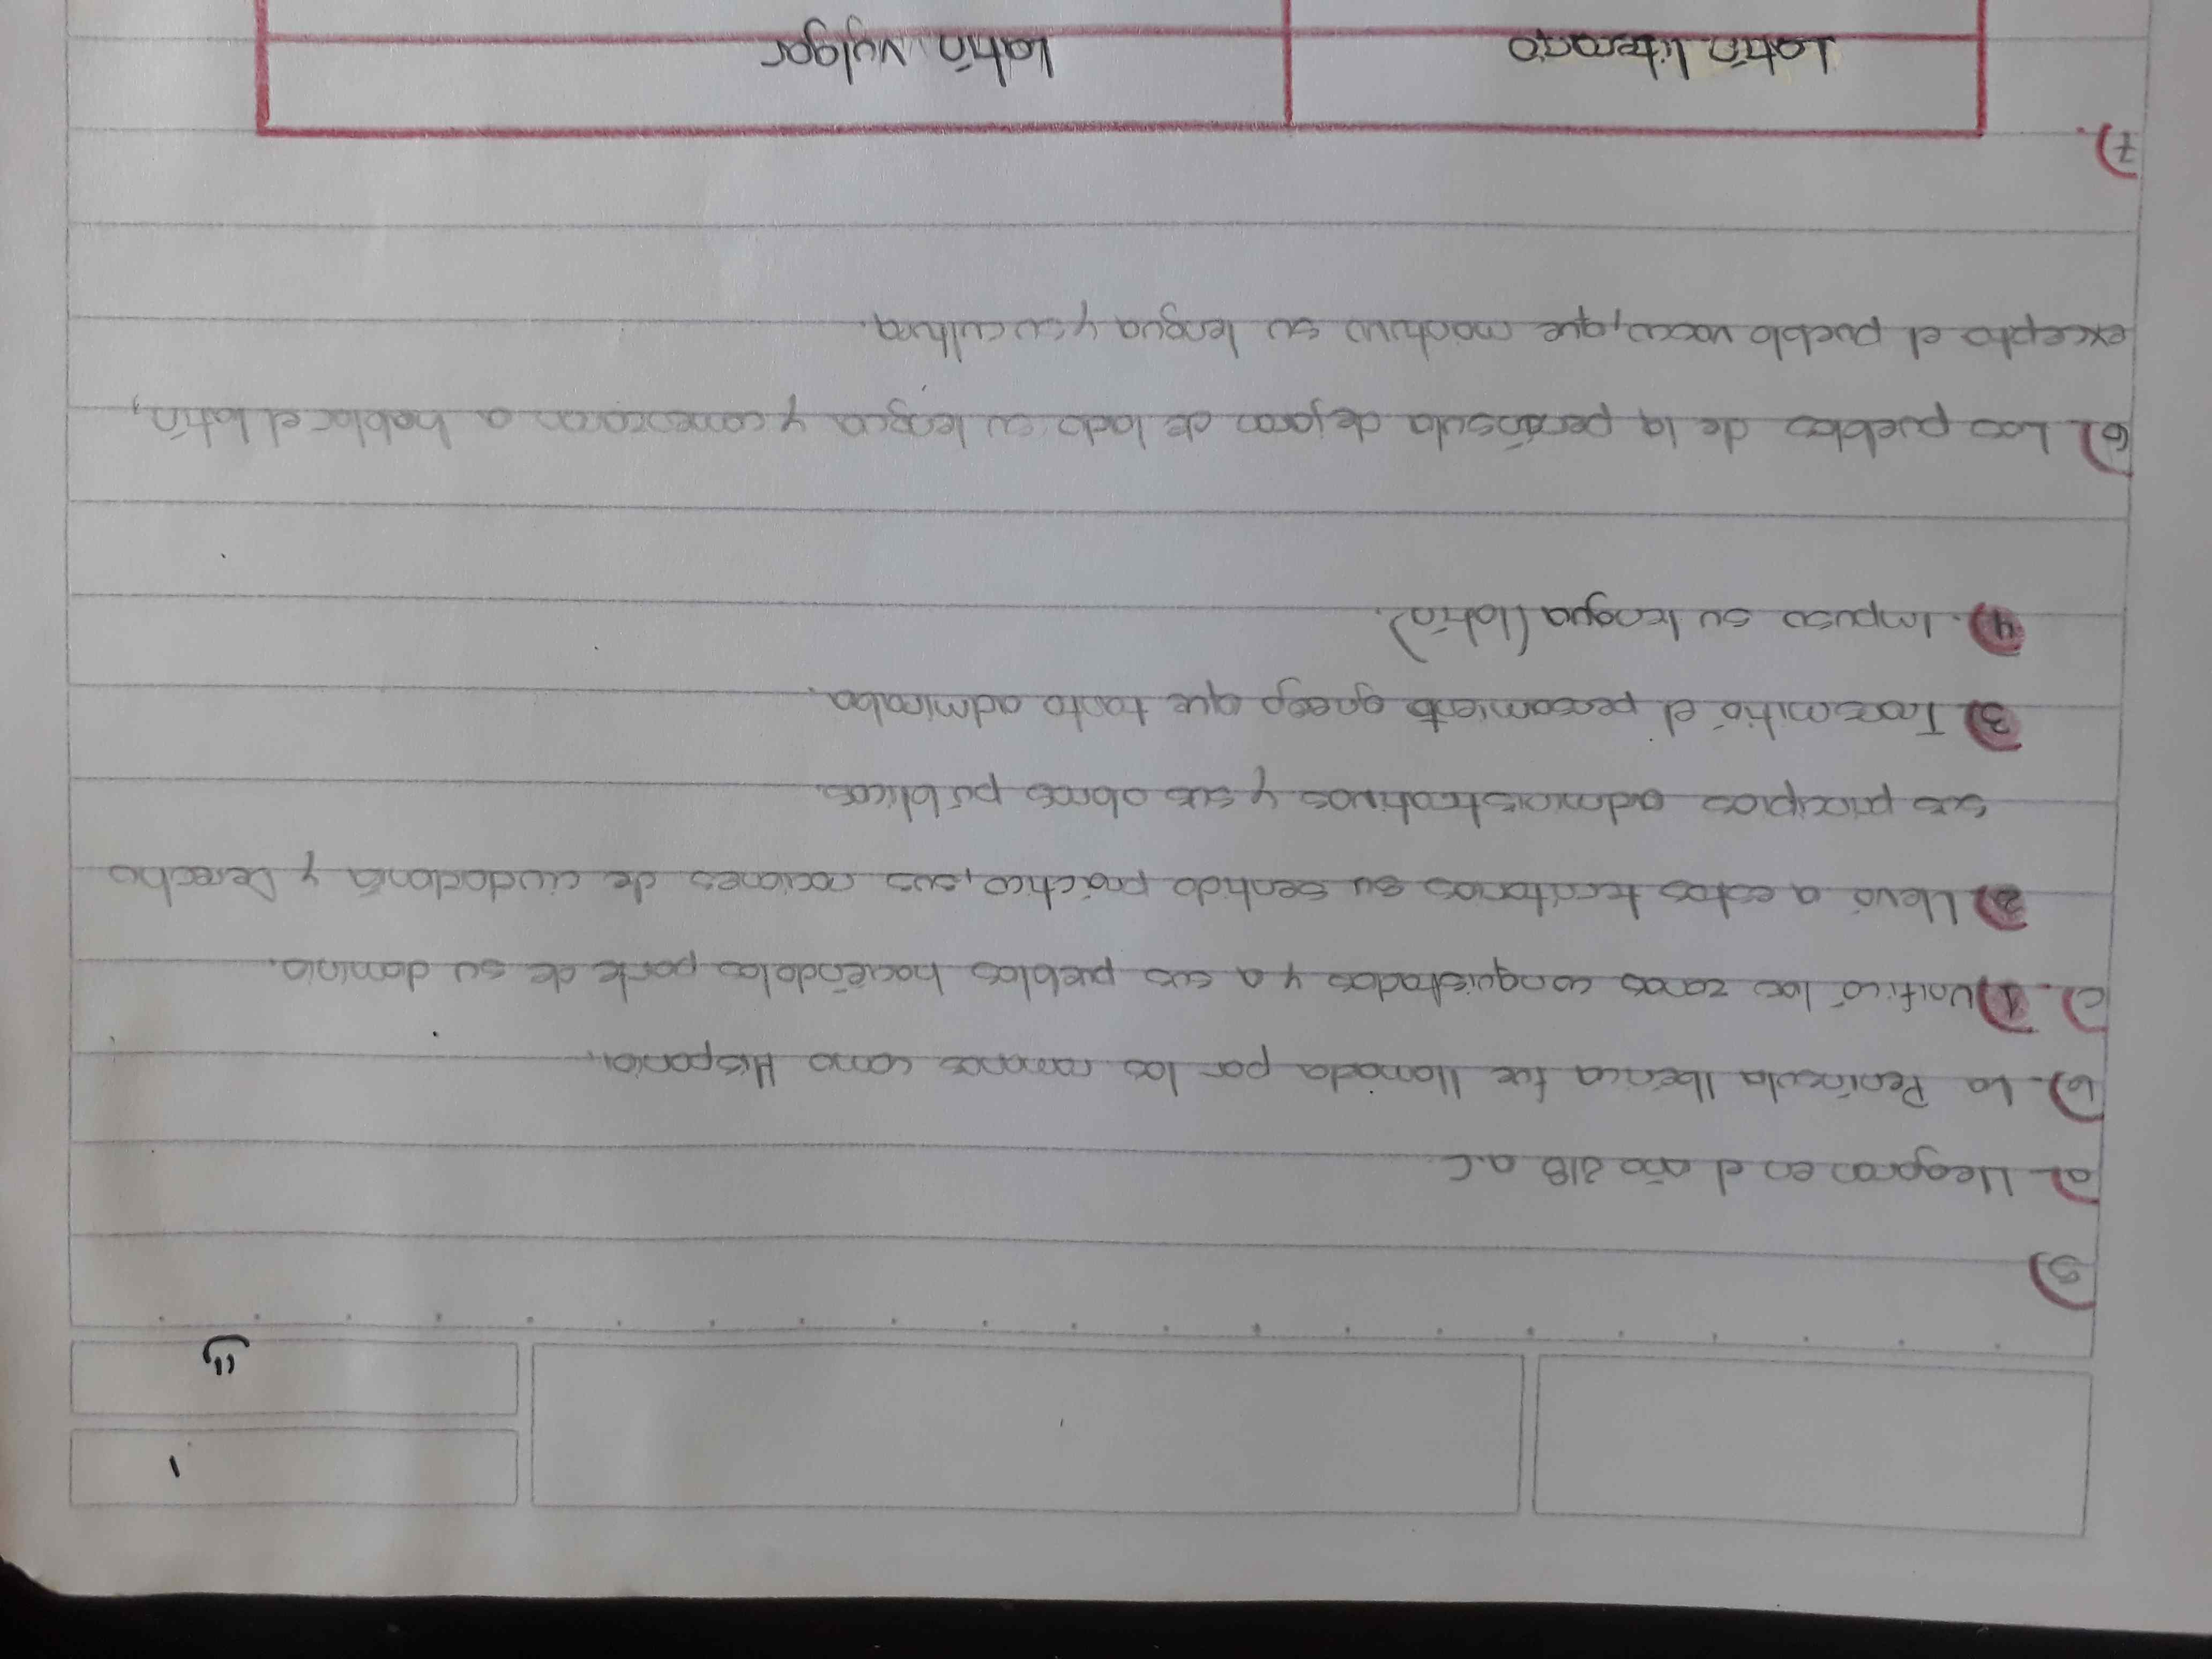 5)
a). Llegaron en el año 218 a.C.
b). La Península Ibérica fue llamada por los romanos como Hispania.
c). 1) Unificó las zonas conquistadas y a sus pueblos haciéndolos parte de su dominio.
2) Llevó a estos territorios su sentido práctico, sus nociones de ciudadanía y Derecho
sus principios administrativos y sus obras públicas.
3) Transmitió el pensamiento griego que tanto admiraba.
4). Impuso su lengua (latín).
6). Los pueblos de la península dejaron de lado su lengua y comenzaron a hablar el latín,
excepto el pueblo vasco, que mantuvo su lengua y su cultura.
7).
Latín literario Latín vulgar